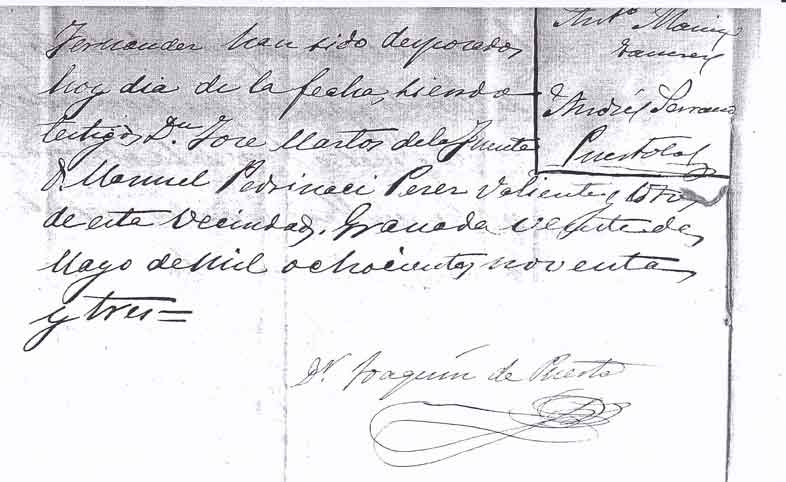 Fernandez han sido desposados
hoy dia de la fecha, siendo
testigos Dn. Jose Martos de la Fuente
D. Manuel Pedrinaci Perez Valiente y otros
de esta vecindad. Granada veinte de
Mayo de mil ochocientos noventa
y tres=
Anto. Maria
Andrés Serrano
Puertolas
Dr. Joaquín de Puerta